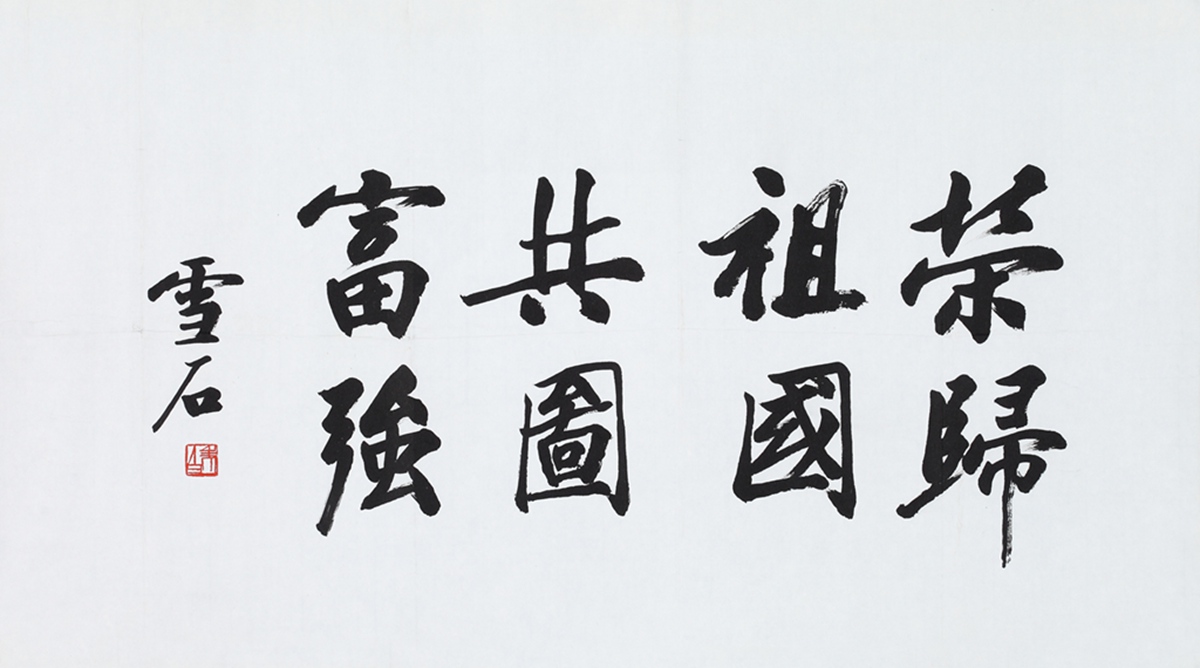 荣歸
祖國
共圖
富強
雪石